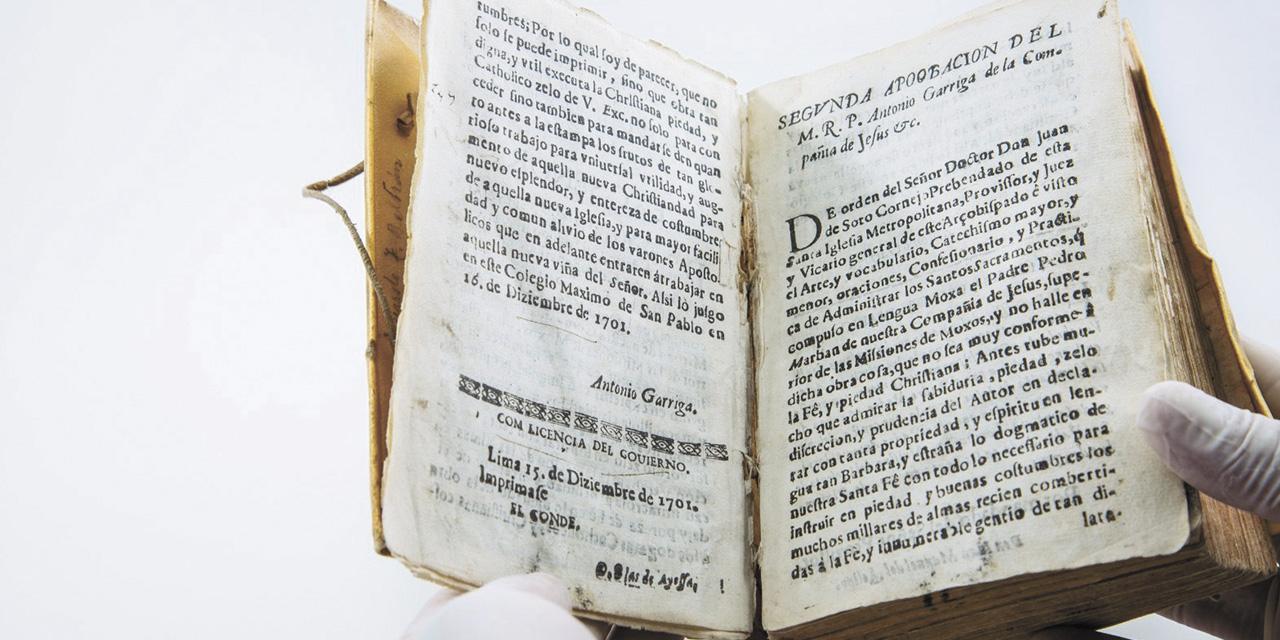 tumbres; Por lo qual soy de parecer, que no
solo se puede imprimir, sino que obra tan
digna, y vtil executa la Christiana piedad, y
Catholico zelo de V. Exc. no solo para con
ceder sino tambien para mandar se den quan
to antes a la estampa los frutos de tan glo-
rioso trabajo para vniuersal vtilidad, y aug-
mento de aquella nueva Christiandad para
nuevo esplendor, y entereza de costumbres
de aquella nueva Iglesia, y para mayor facili
dad y comun alivio de los varones Aposto-
licos que en adelante entraren à trabajar en
aquella nueva viña del Señor, Assi lo juzgo
en este Colegio Maximo de San Pablo en
16. de Diziembre de 1701.
Antonio Garriga.
CON LICENCIA DEL GOUIERNO.
Lima 15. de Diziembre de 1701.
Imprimase
EL CONDE.
D. Blas de Ayessa,
SEGVNDA APOOBACION DEL
M. R. P. Antonio Garriga de la Com-
pañia de Jesus &c.
DE orden del Señor Doctor Don Juan
de Soto Cornejo Prebendado de esta
Santa Iglesia Metropolitana, Provissor, y Juez
y Vicario general de este Arçobispado è visto
el Arte, y vocabulario, Catechismo mayor, y
menor, oraciones, Confesionario, y Practi-
ca de Administrar los Santos Sacramentos, q̃
compuso en Lengua Moxa el Padre Pedro
Marban de nuestra Compañia de Jesus, supe-
rior de las Missiones de Moxos, y no halle en
dicha obra cosa, que no sea muy conforme à
la Fê, y piedad Christiana; Antes tube mu-
cho que admirar la sabiduria, piedad, zelo
discrecion, y prudencia del Autor en decla-
rar con tanta propriedad, y espiritu en len-
gua tan Barbara, y estraña lo dogmatico de
nuestra Santa Fê con todo lo necessario para
instruir en piedad, y buenas costumbres los
muchos millares de almas recien comberti-
das à la Fè, y innumerable gentio de tan di-
lata-